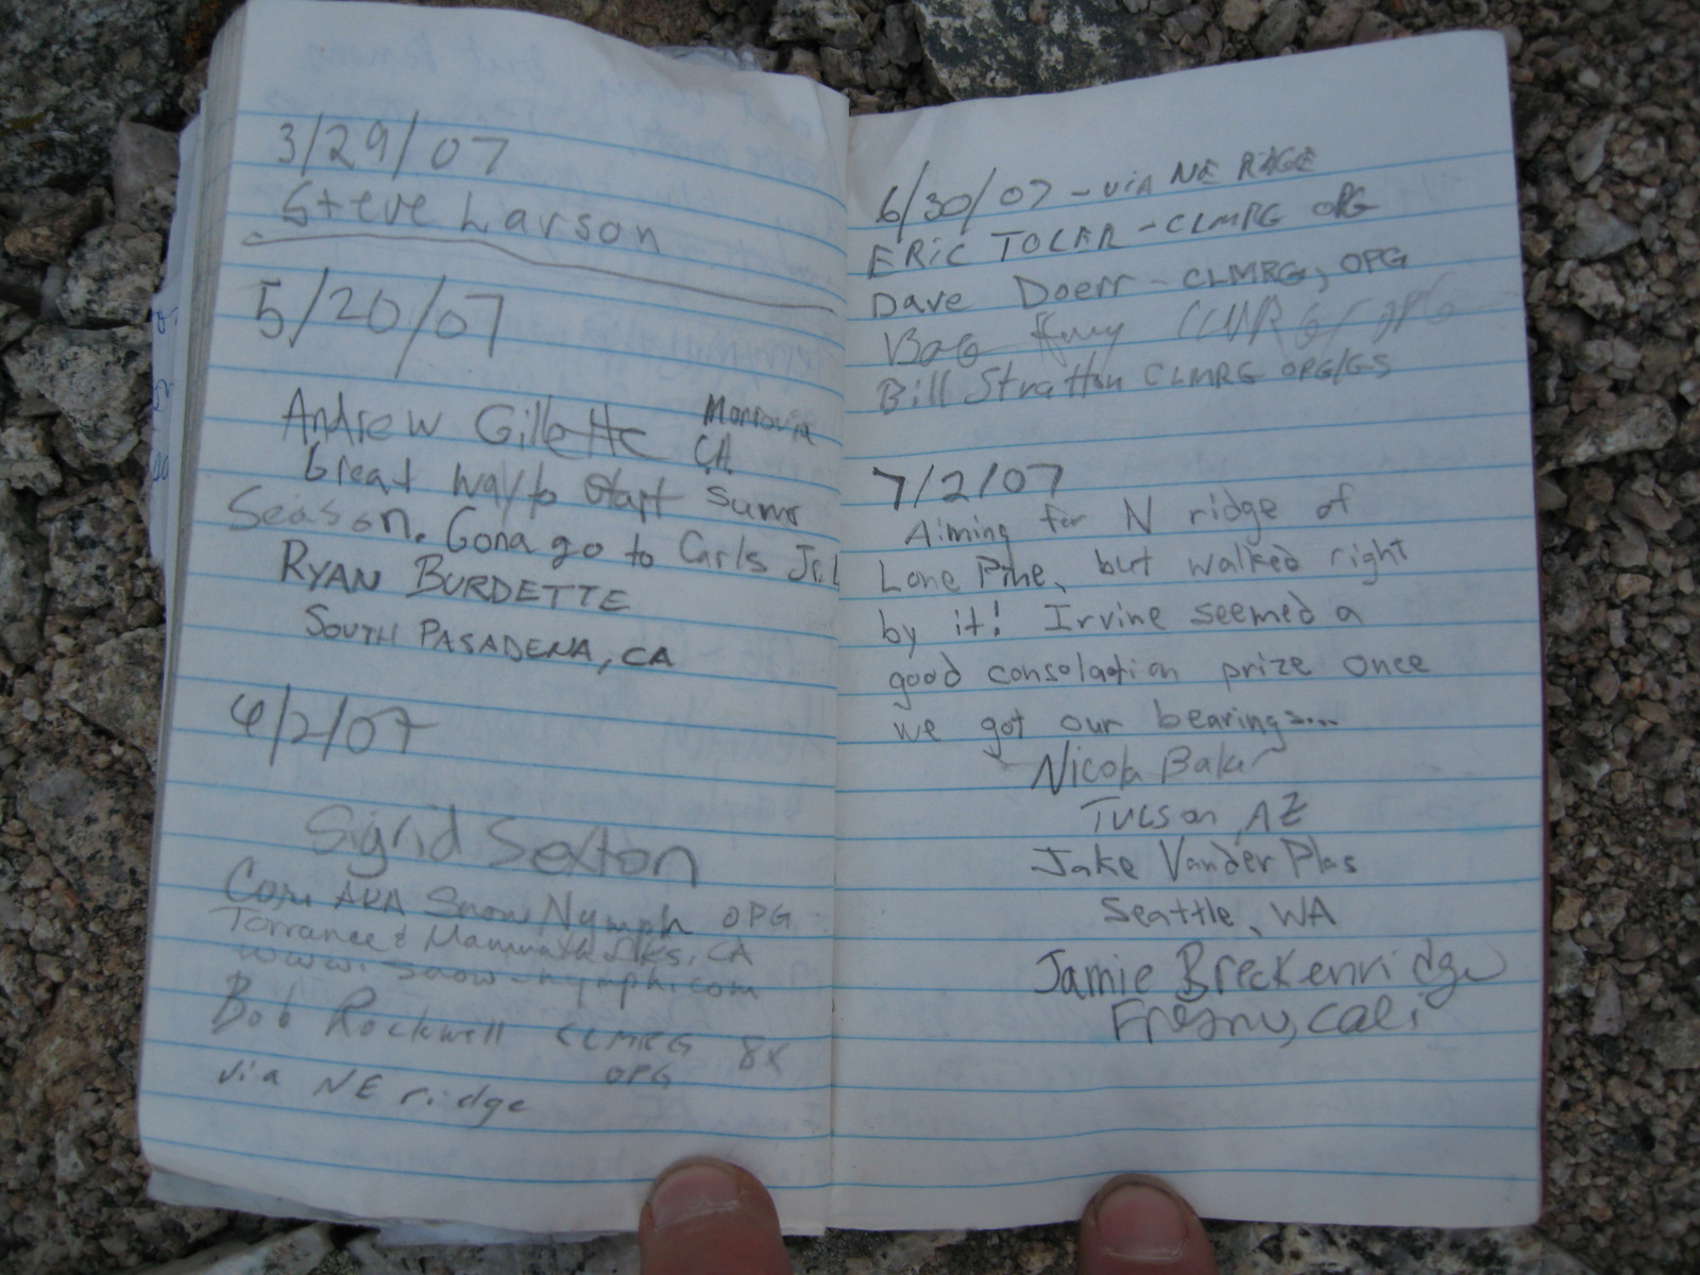 3/29/07
Steve Larson
5/20/07
Andrew Gillette Monrovia
CA
Great way to start sumr
Season. Gona go to Carls Jr.!
RYAN BURDETTE
SOUTH PASADENA, CA
6/2/07
Sigrid Sexton
AKA Snow Nymph OPG
Torrance & Mammoth Lks, CA
www.snow-nymph.com
Bob Rockwell CLMRG 8x
OPG
via NE ridge
6/30/07 - VIA NE RIDGE
ERIC TOLER - CLMRG OPG
Dave Doerr - CLMRG, OPG
CLMRG/OPG
Bill Stratton CLMRG OPG/GS
7/2/07
Aiming for N ridge of
Lone Pine, but walked right
by it! Irvine seemed a
good consolation prize once
we got our bearings...
Nicola Baker
Tucson, AZ
Jake VanderPlas
Seattle, WA
Jamie Breckenridge
Fresno, Cali